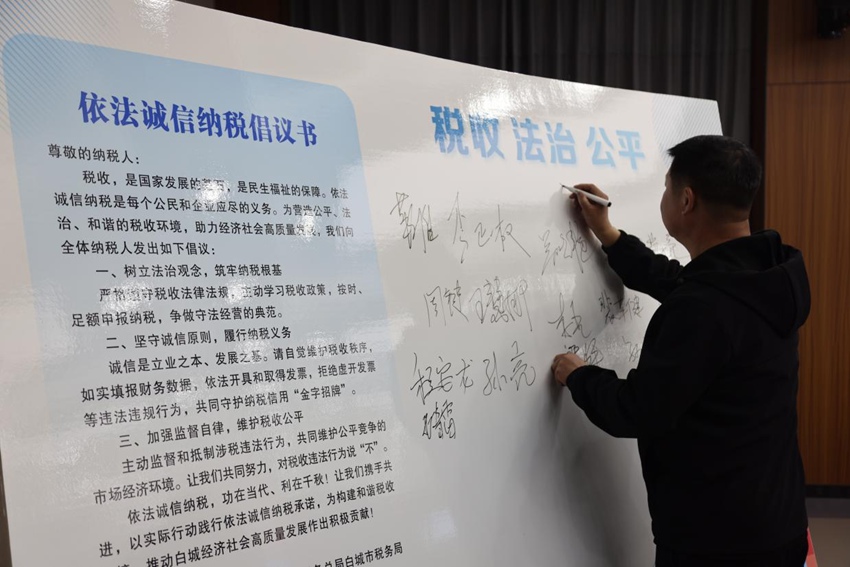 依法诚信纳税倡议书
尊敬的纳税人：
税收，是国家发展的基石，是民生福祉的保障。依法
诚信纳税是每个公民和企业应尽的义务。为营造公平、法
治、和谐的税收环境，助力经济社会高质量发展，我们向
全体纳税人发出如下倡议：
一、树立法治观念，筑牢纳税根基
严格遵守税收法律法规，主动学习税收政策，按时、
足额申报纳税，争做守法经营的典范。
二、坚守诚信原则，履行纳税义务
诚信是立业之本、发展之基。请自觉维护税收秩序，
如实填报财务数据，依法开具和取得发票，拒绝虚开发票
等违法违规行为，共同守护纳税信用“金字招牌”。
三、加强监督自律，维护税收公平
主动监督和抵制涉税违法行为，共同维护公平竞争的
市场经济环境。让我们共同努力，对税收违法行为说“不”。
依法诚信纳税，功在当代、利在千秋！让我们携手共
进，以实际行动践行依法诚信纳税承诺，为构建和谐税收
推动白城经济社会高质量发展作出积极贡献！
总局白城市税务局
税收 法治 公平
程安龙 孙亮